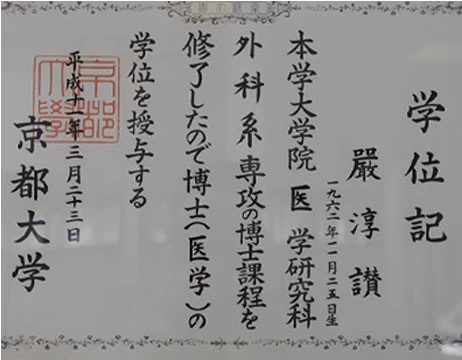 学位記
嚴淳讃
一九六二年一一月二五日生
本学大学院医学研究科
外科系専攻の博士課程を
修了したので博士(医学)の
学位を授与する
平成十一年三月二十三日
京都大学